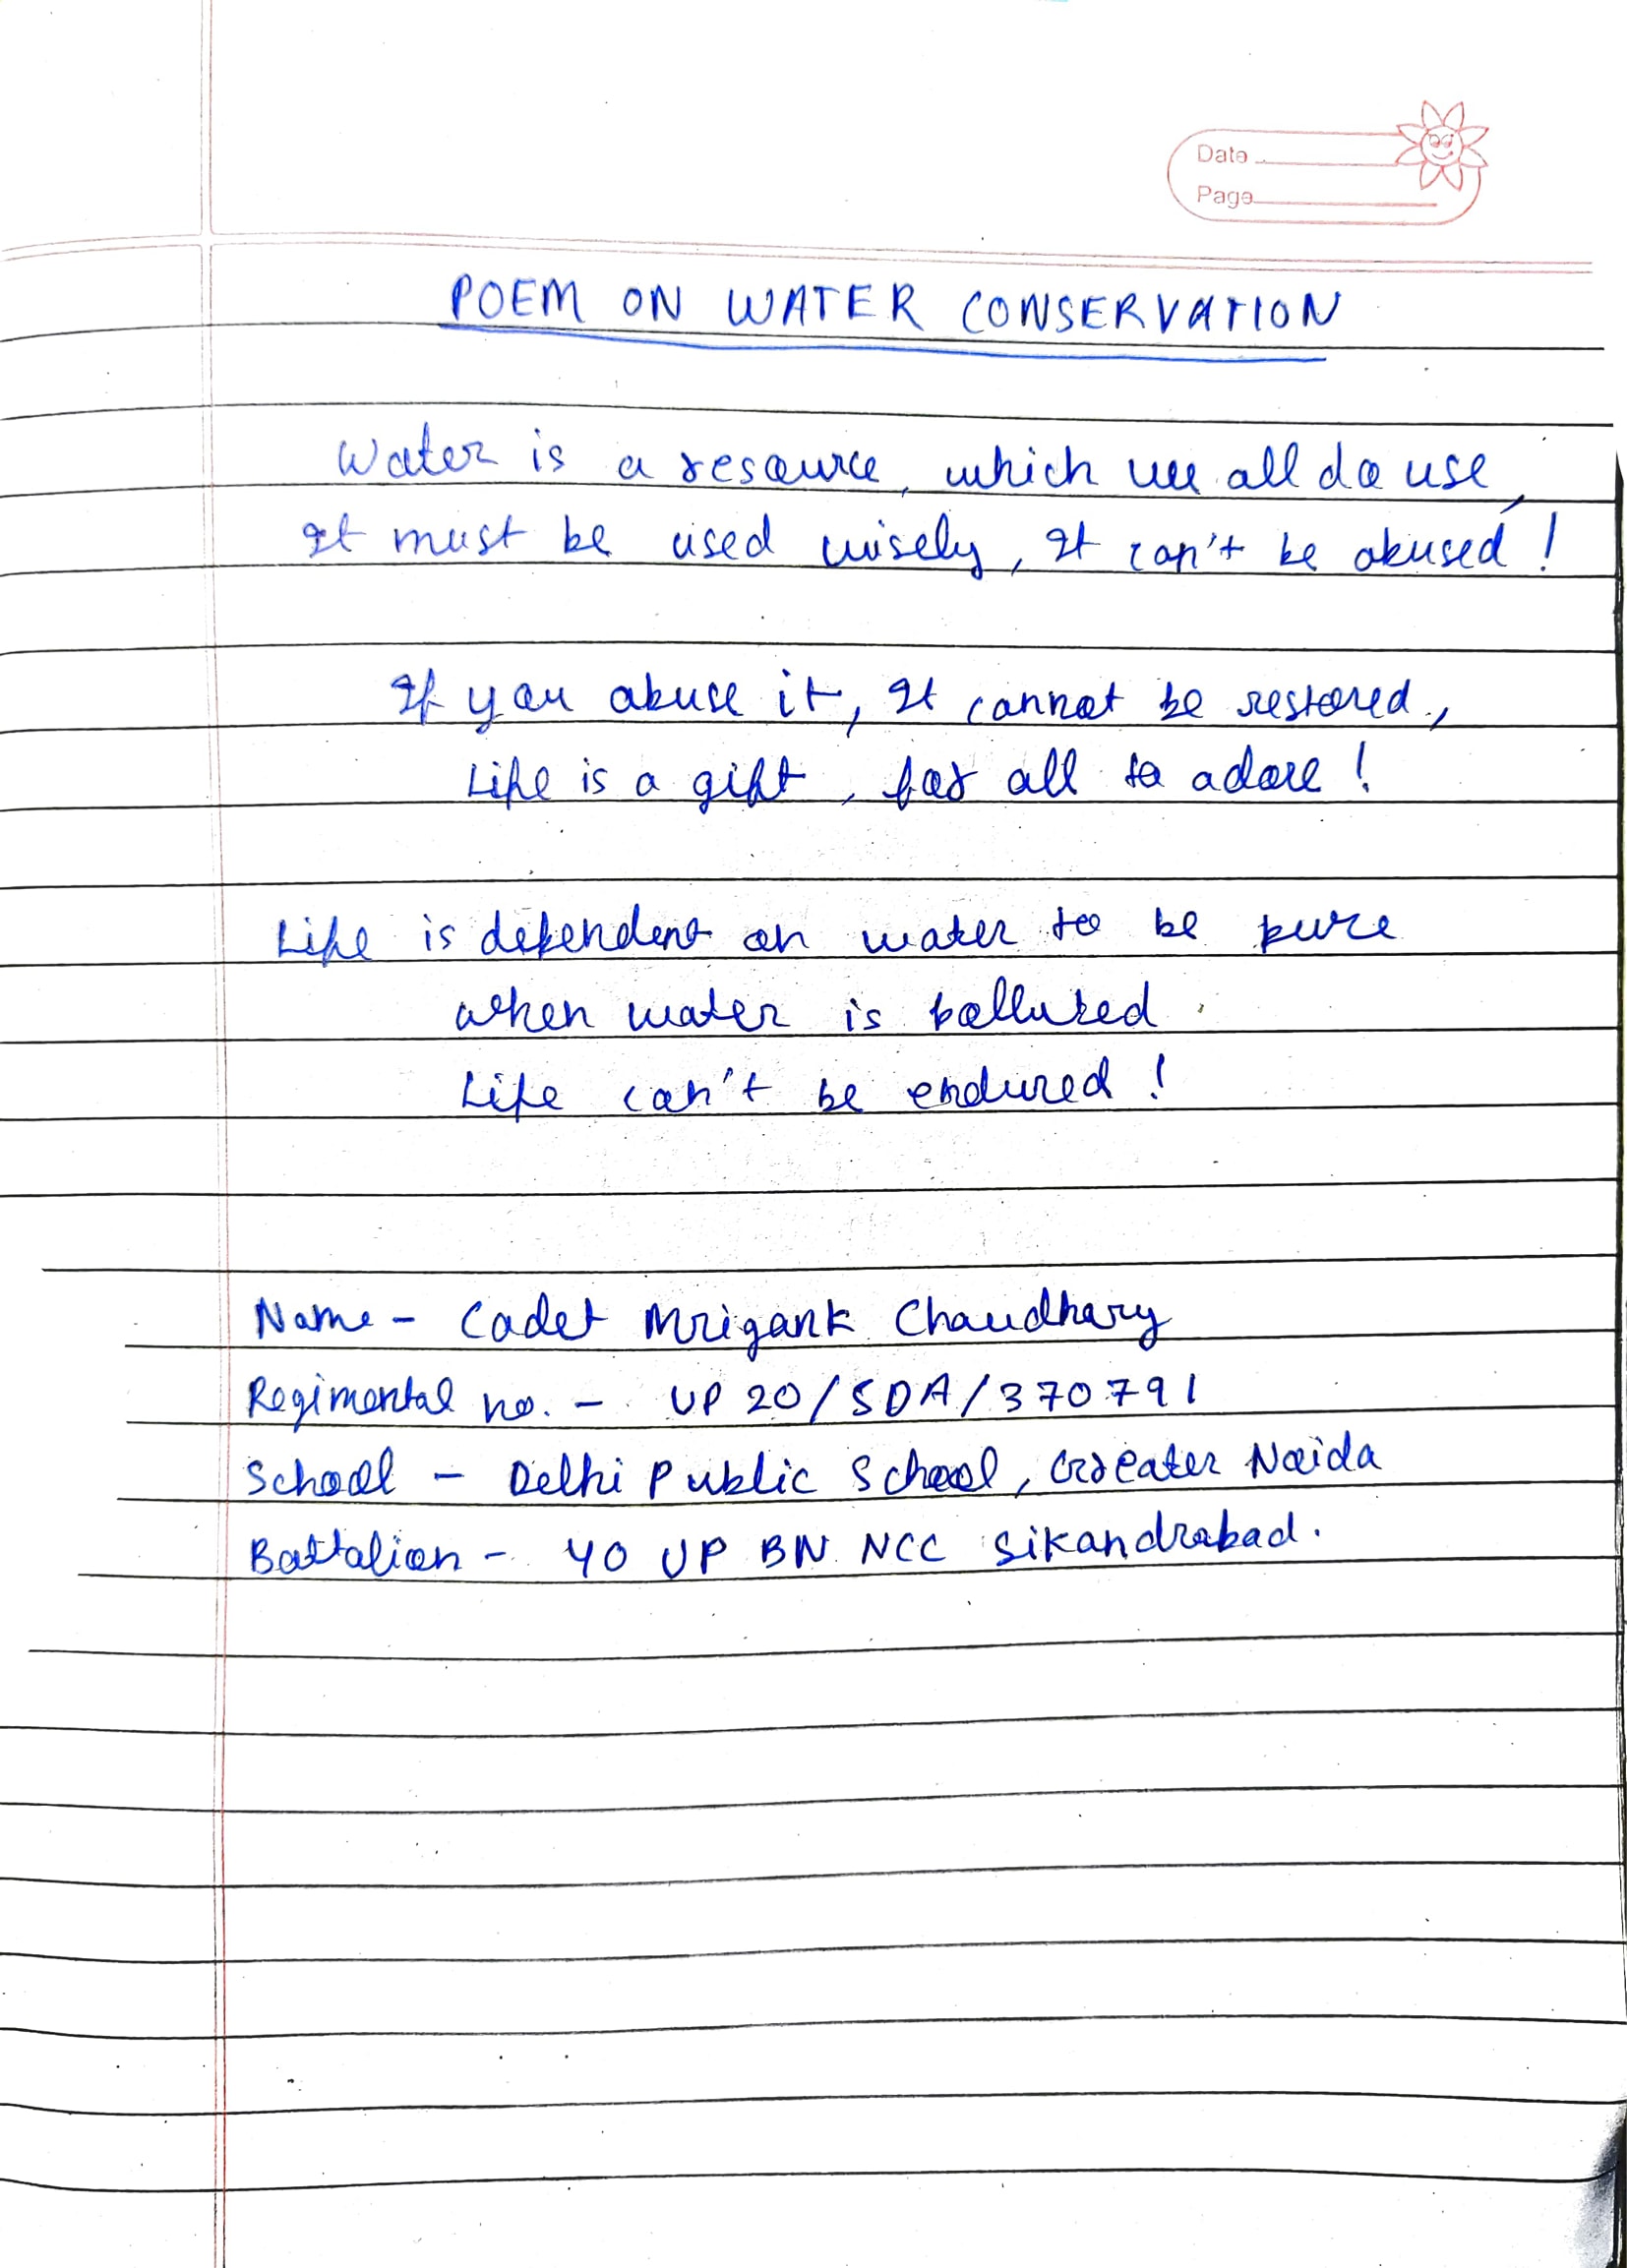 Date
Page
POEM ON WATER CONSERVATION
Water is a resource, which we all do use,
It must be used wisely, It can't be abused!
If you abuse it, It cannot be restored,
Life is a gift, for all to adore!
Life is dependent on water to be pure
when water is polluted.
Life can't be endured!
Name - Cadet Mrigank Chaudhary
Regimental no. - UP 20/SDA/370791
School - Delhi Public School, Greater Noida
Battalion - 40 UP BN NCC Sikandrabad.